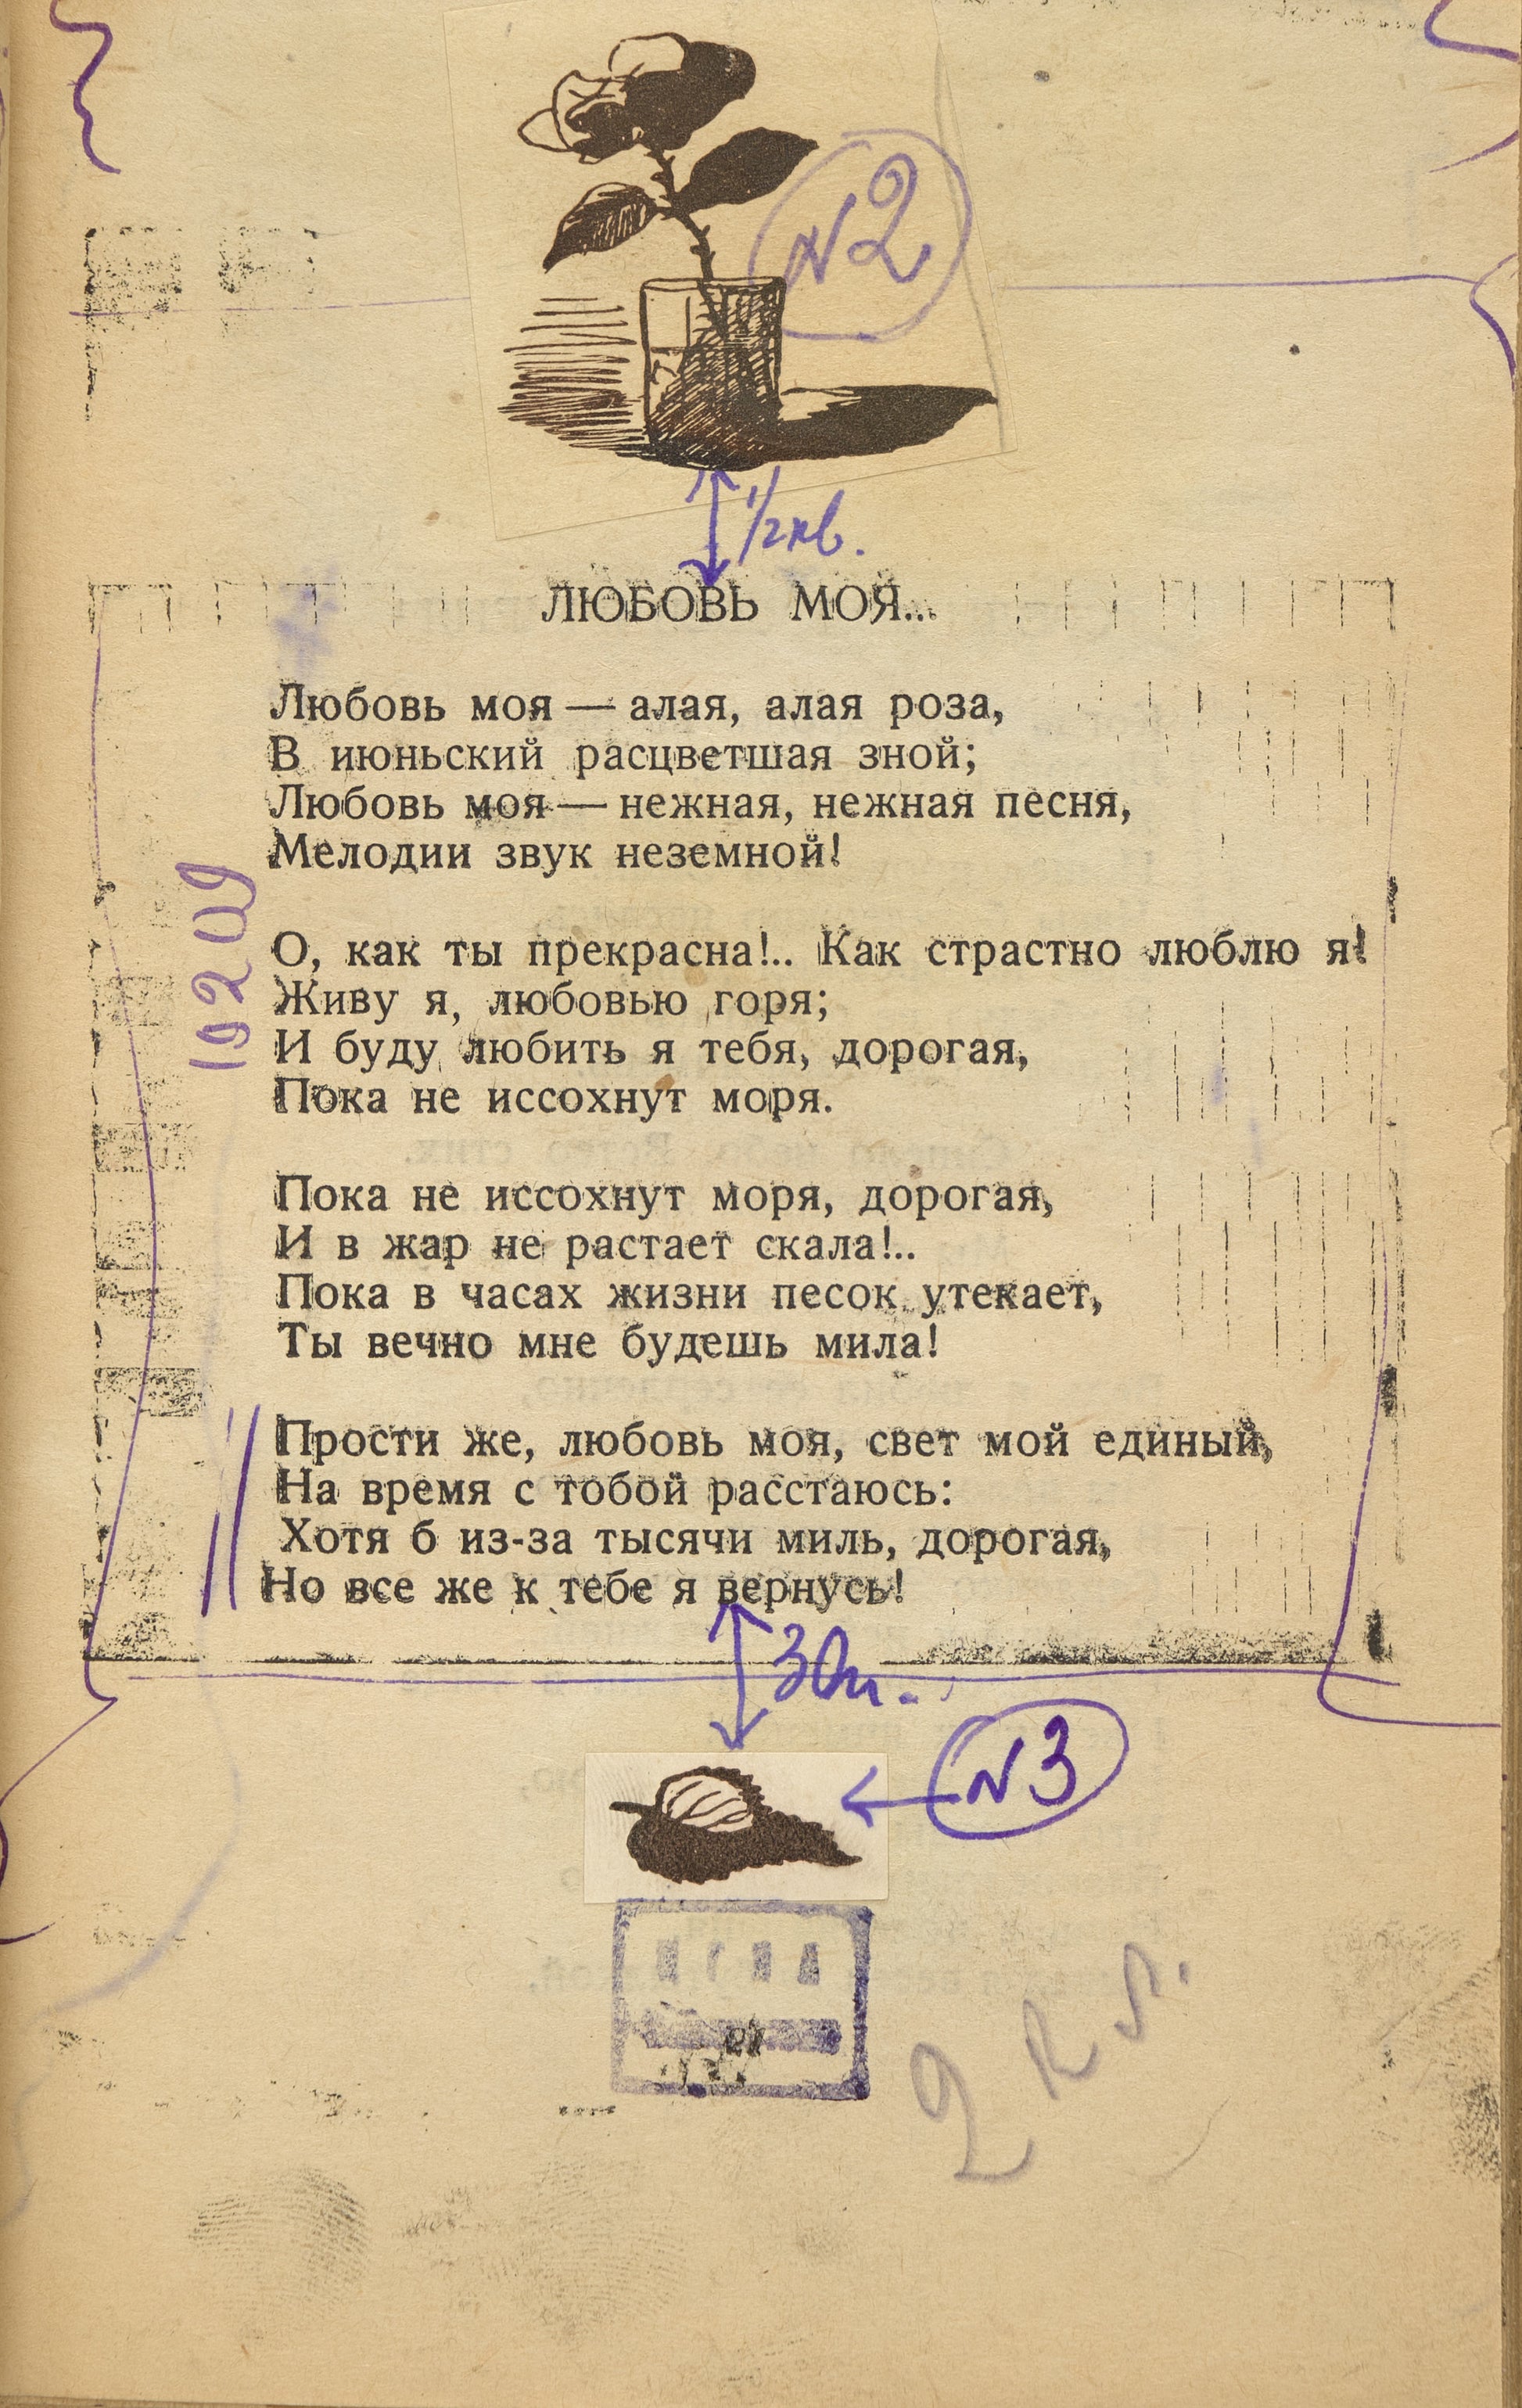 N2
1/2 кв.
ЛЮБОВЬ МОЯ...
Любовь моя — алая, алая роза,
В июньский расцветшая зной;
Любовь моя — нежная, нежная песня,
Мелодии звук неземной!
О, как ты прекрасна!.. Как страстно люблю я!
Живу я, любовью горя;
И буду любить я тебя, дорогая,
Пока не иссохнут моря.
Пока не иссохнут моря, дорогая,
И в жар не растает скала!..
Пока в часах жизни песок утекает,
Ты вечно мне будешь мила!
Прости же, любовь моя, свет мой единый,
На время с тобой расстаюсь:
Хотя б из-за тысячи миль, дорогая,
Но все же к тебе я вернусь!
N3